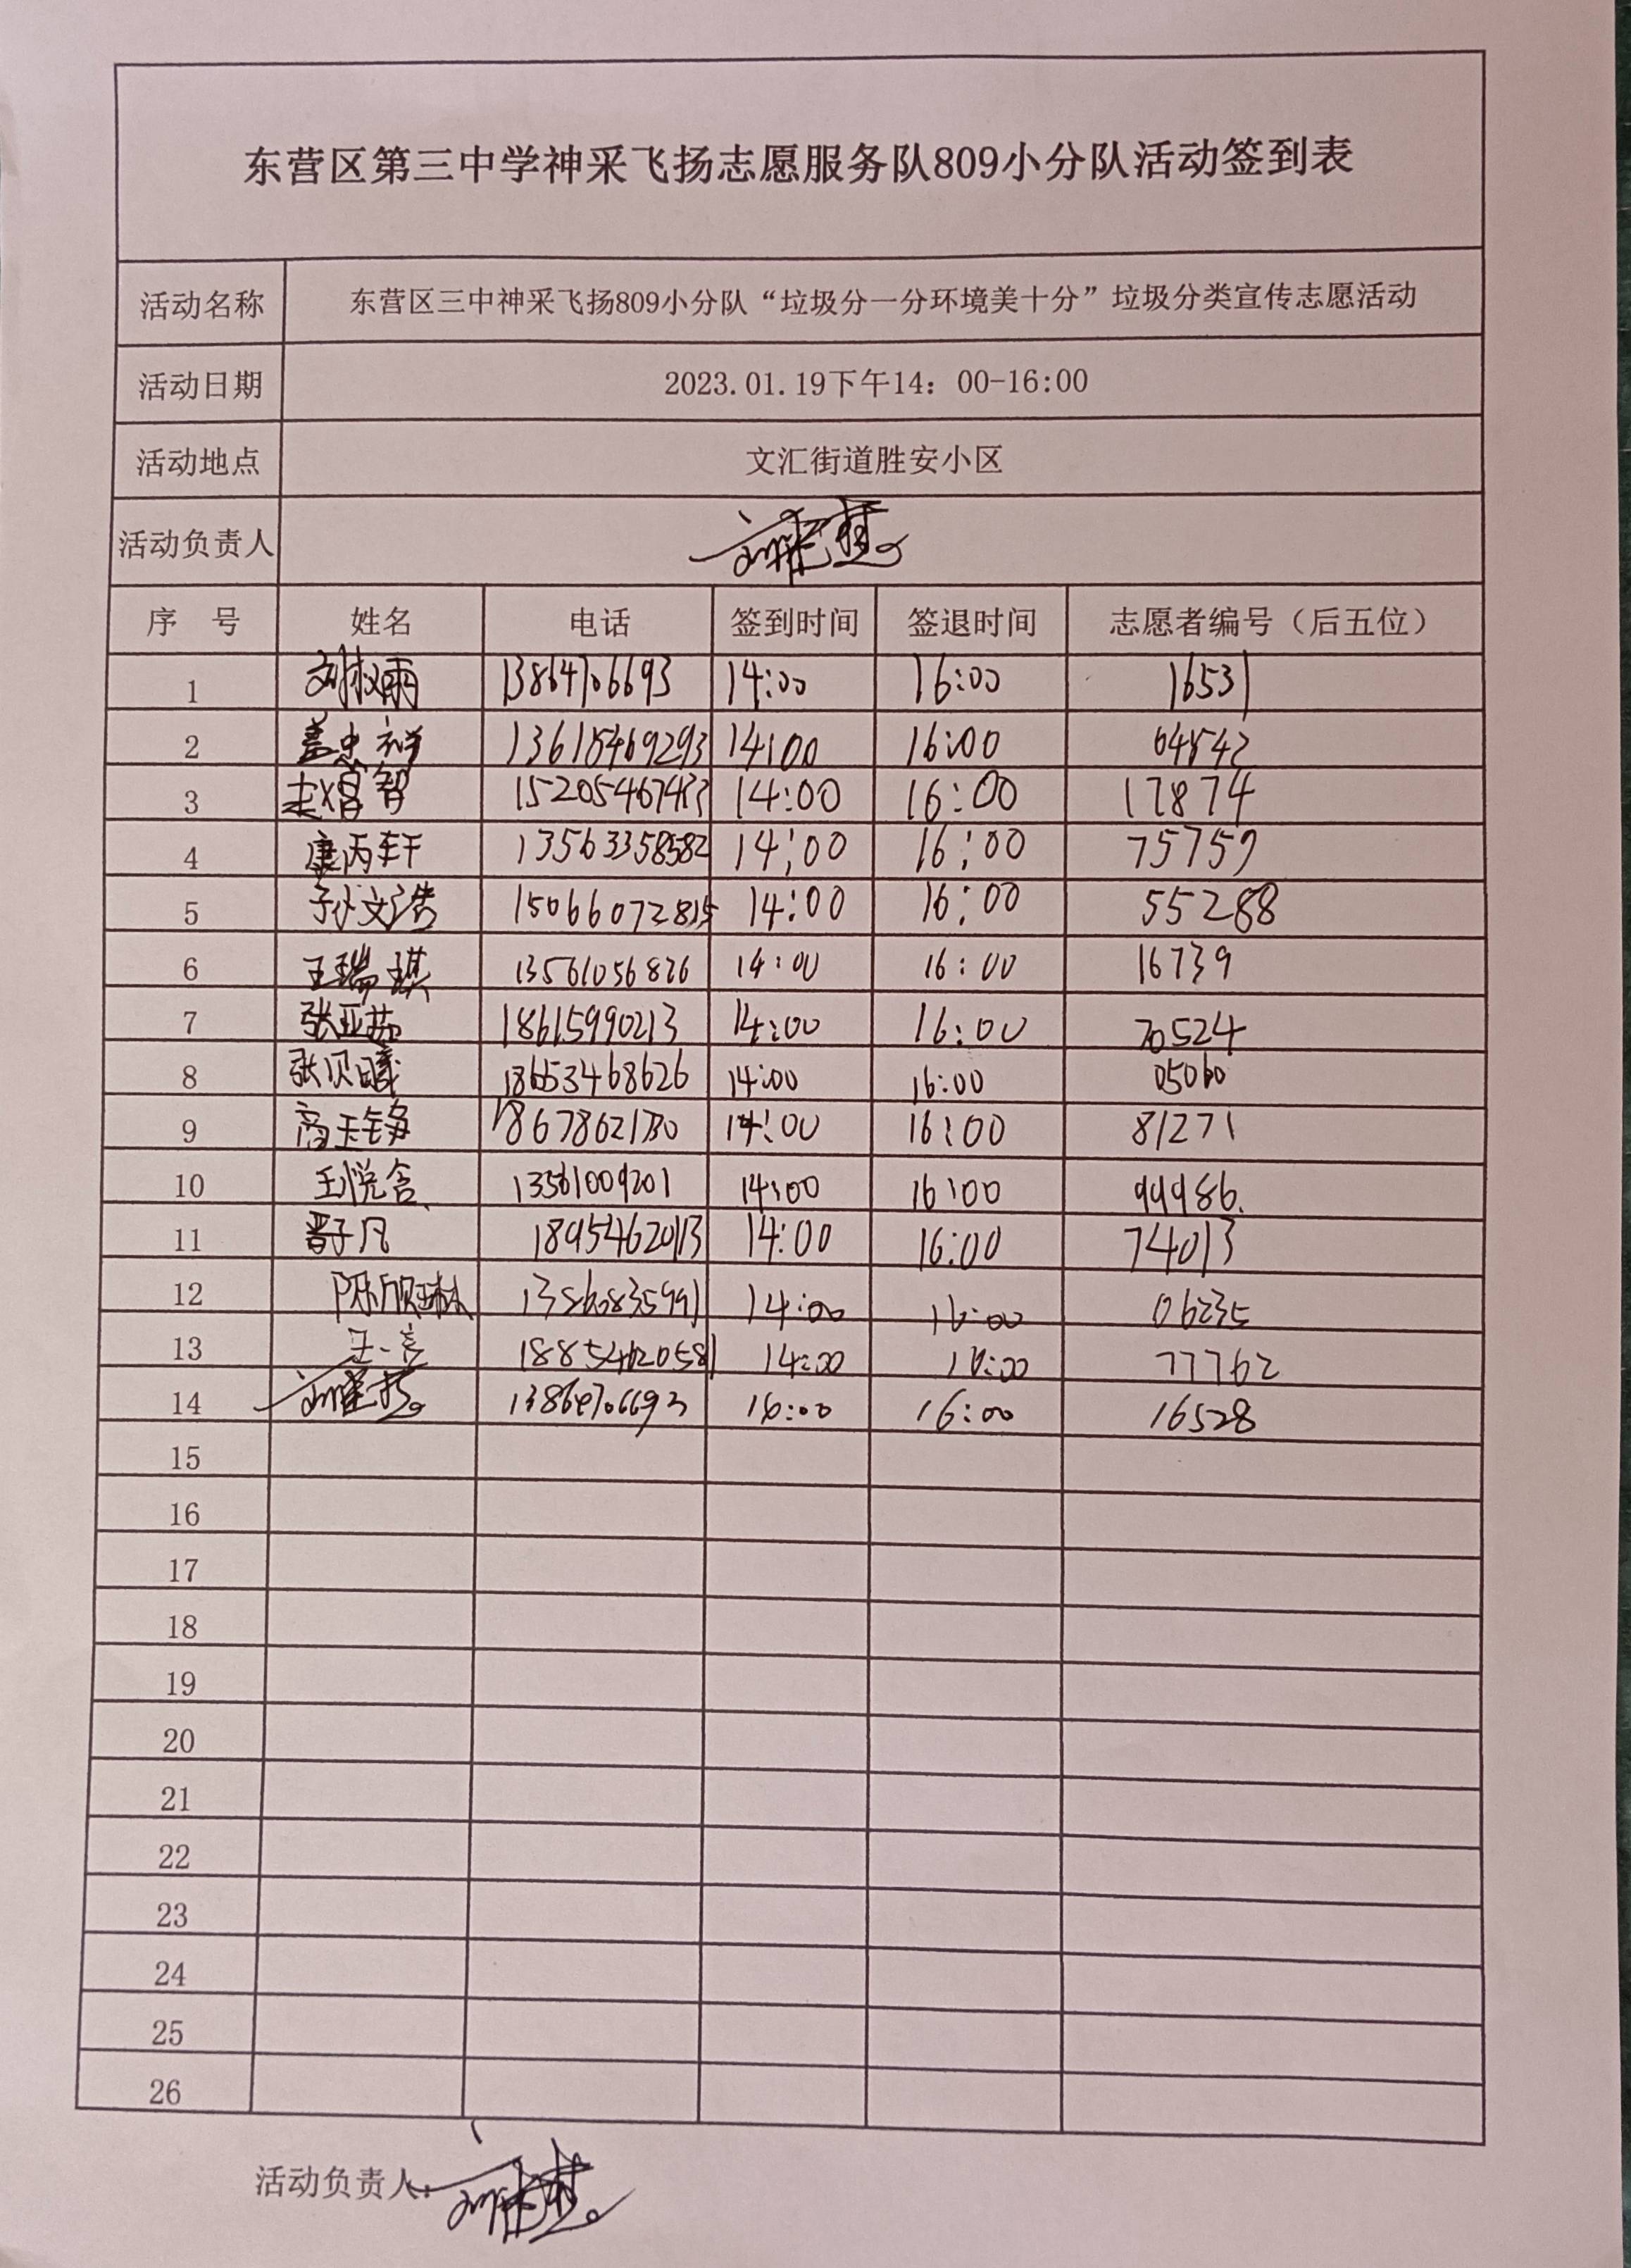 东营区第三中学神采飞扬志愿服务队809小分队活动签到表
活动名称 东营区三中神采飞扬809小分队“垃圾分一分环境美十分”垃圾分类宣传志愿活动
活动日期 2023.01.19下午14：00-16:00
活动地点 文汇街道胜安小区
活动负责人
序 号 姓名 电话 签到时间 签退时间 志愿者编号（后五位）
1 13864706693 14:00 16:00 16531
2 盖忠祥 13618469293 14:00 16:00 64842
3 14:00 16:00 17874
4 康丙轩 13563358582 14:00 16:00 75759
5 孙文浩 14:00 16:00 55288
6 王瑞琪 13561056826 14:00 16:00 16739
7 张亚茹 18615990213 14:00 16:00 70524
8 张贝曦 18653468626 14:00 16:00 05060
9 高玉铭 14:00 16:00 81271
10 王悦含 13561009201 14:00 16:00 99986.
11 晋子凡 18954620113 14:00 16:00 74013
12 14:00 16:00 06235
13 14:00 16:00 77762
14 13864706693 16:00 16:00 16528
15
16
17
18
19
20
21
22
23
24
25
26
活动负责人：